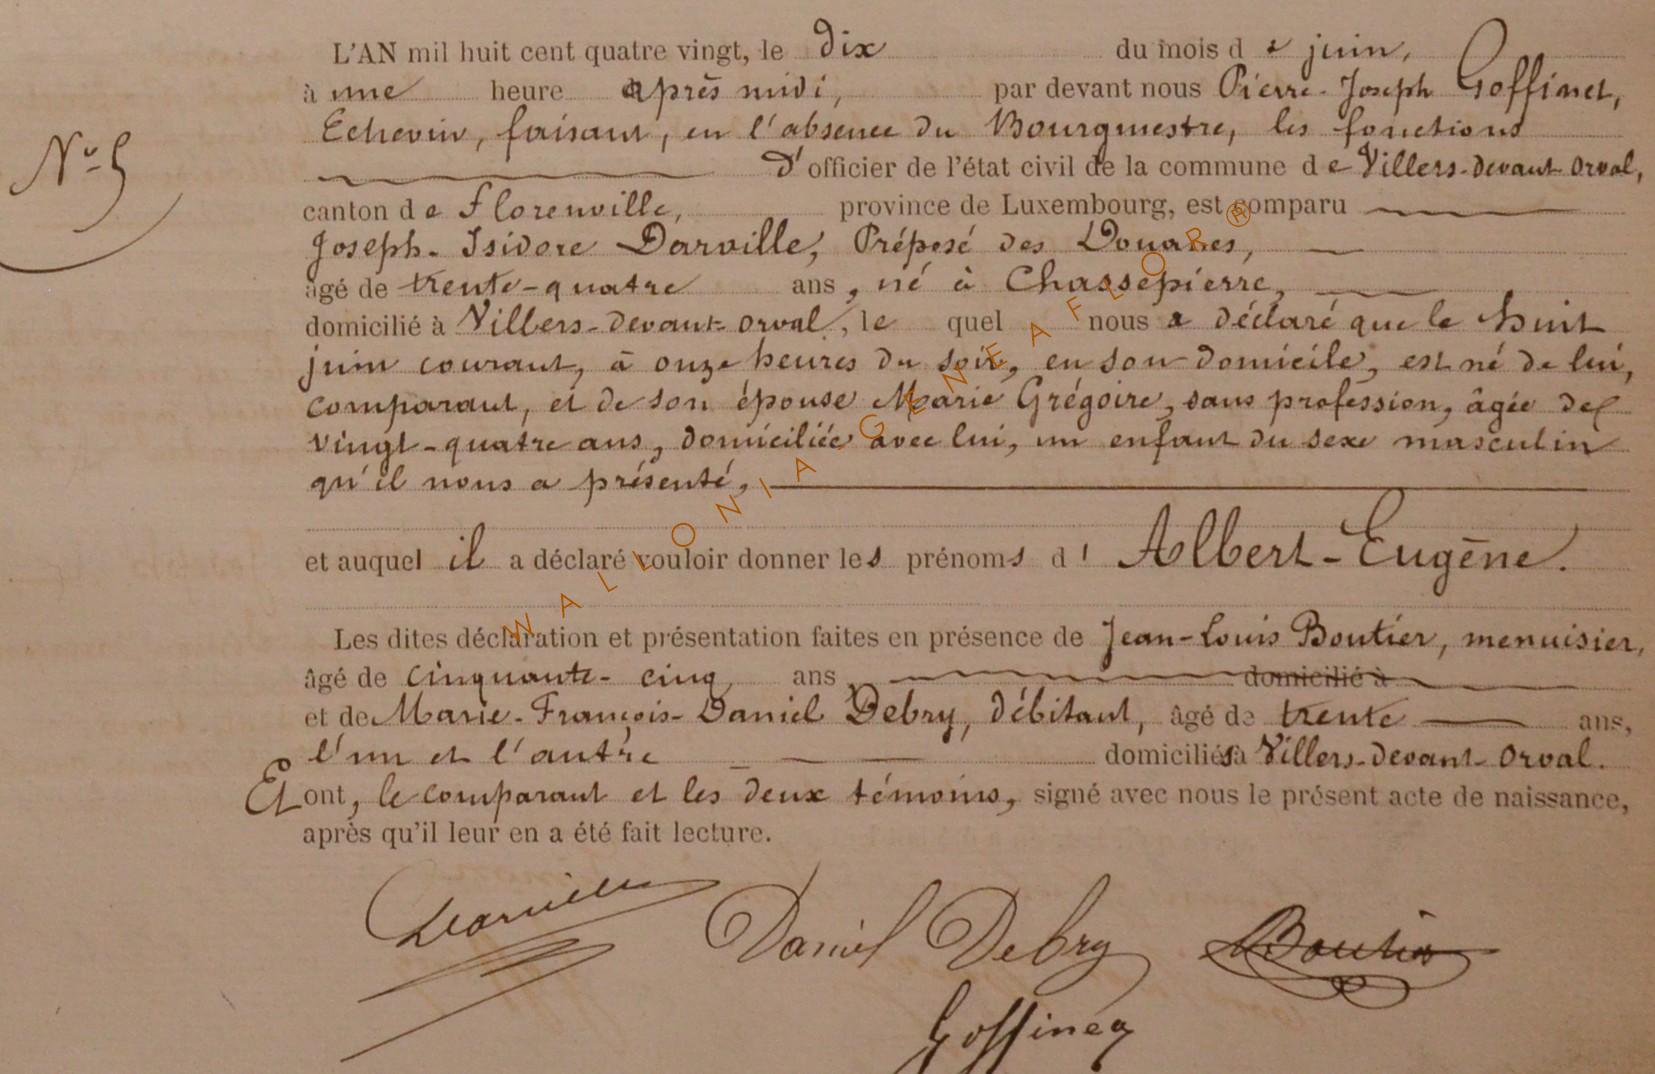 L'AN mil huit cent quatre vingt, le dix du mois de juin,
à une heure après midi, par devant nous Pierre-Joseph Goffinet,
Echevin, faisant, en l'absence du Bourgmestre, les fonctions
N° 5
d'officier de l'état civil de la commune de Villers-devant-Orval,
canton de Florenville, province de Luxembourg, est comparu
Joseph-Isidore Darville, Préposé des Douanes,
âgé de trente-quatre ans, né à Chassepierre,
domicilié à Villers-devant-Orval, lequel nous a déclaré que le huit
juin courant, à onze heures du soir, en son domicile, est né de lui,
comparant, et de son épouse Marie Grégoire, sans profession, âgée de
vingt-quatre ans, domiciliée avec lui, un enfant du sexe masculin
qu'il nous a présenté,
et auquel il a déclaré vouloir donner les prénoms d'Albert-Eugène.
Les dites déclaration et présentation faites en présence de Jean-Louis Boutier, menuisier,
âgé de cinquante-cinq ans, domicilié à
et de Marie-François-Daniel Debry, débitant, âgé de trente ans,
l'un et l'autre domiciliés à Villers-devant-Orval.
Et ont, le comparant et les deux témoins, signé avec nous le présent acte de naissance,
après qu'il leur en a été fait lecture.
Darville Daniel Debry Boutier
Goffinet
WALLONIA GENEAFLOR ®